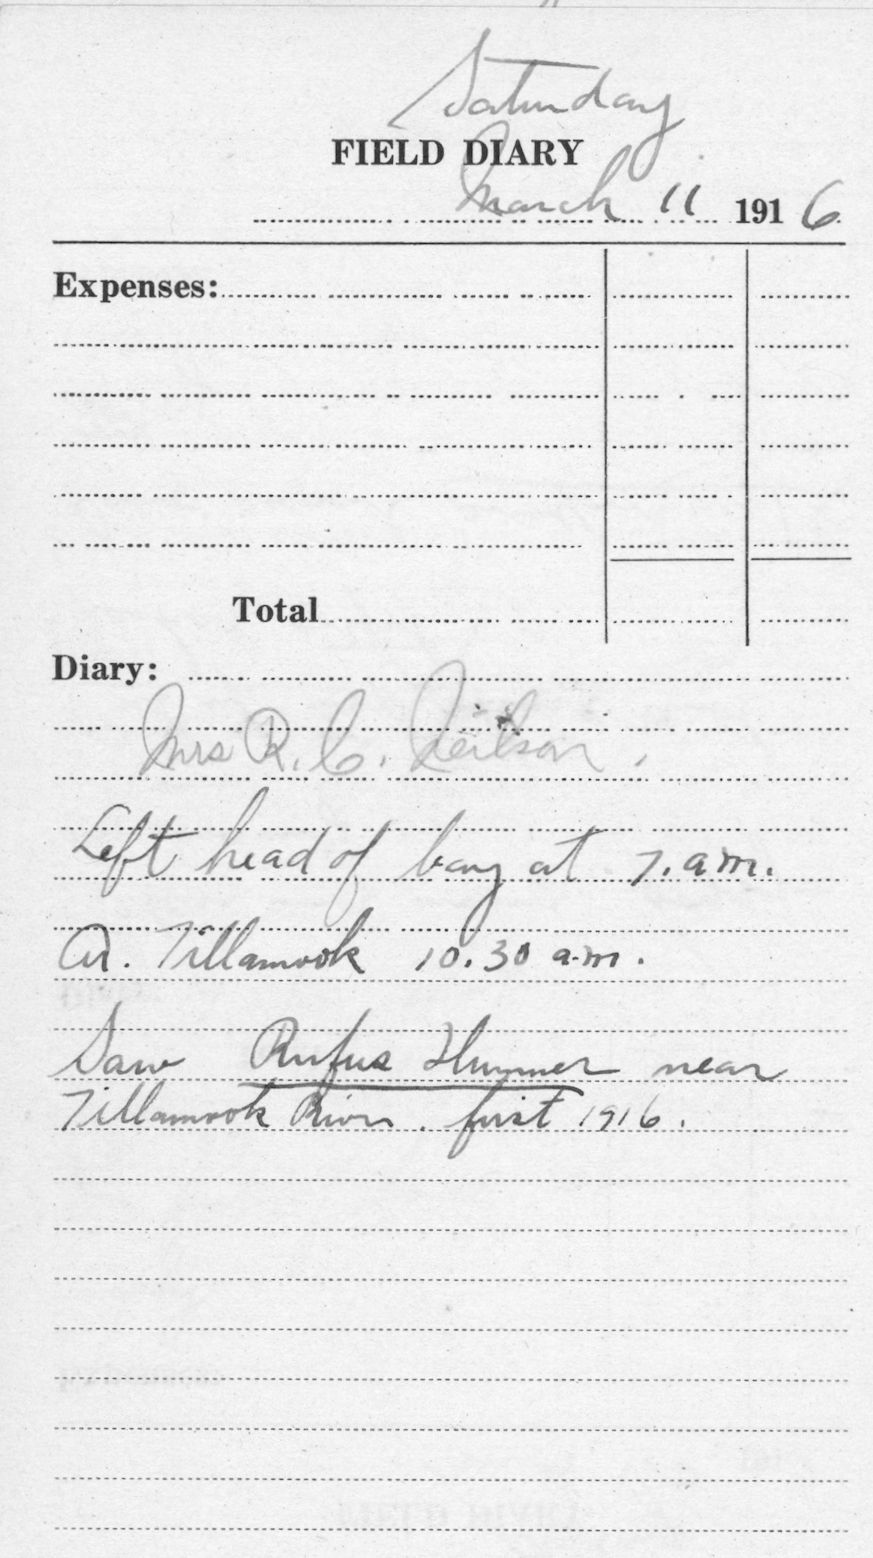 Saturday
FIELD DIARY
March 11 1916
Expenses:
Total
Diary:
Mrs R. C. Neilson.
Left head of bay at 7. a.m.
Ar. Tillamook 10.30 a.m.
Saw Rufus Hummer near
Tillamook River. first 1916.